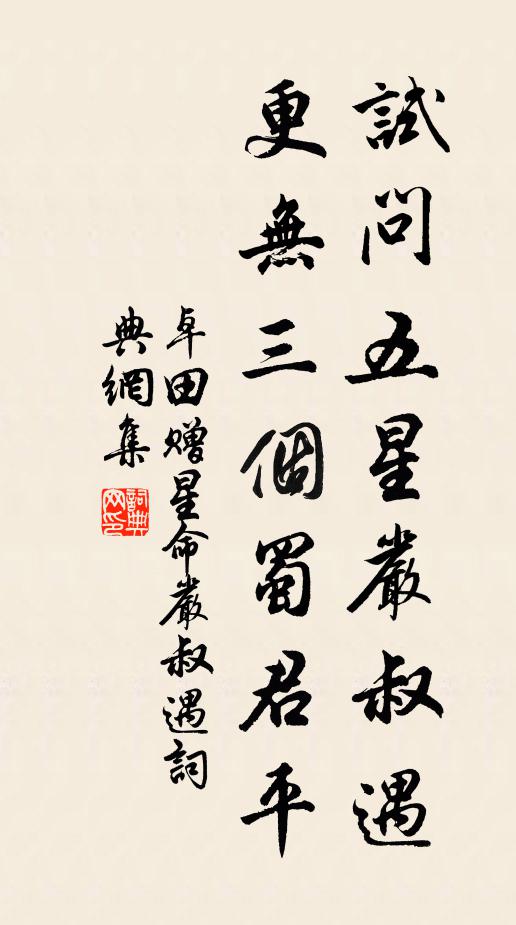 試問五星嚴叔遇
更無三個蜀君平
卓田贈星命嚴叔遇詞
典網集
詞典網印